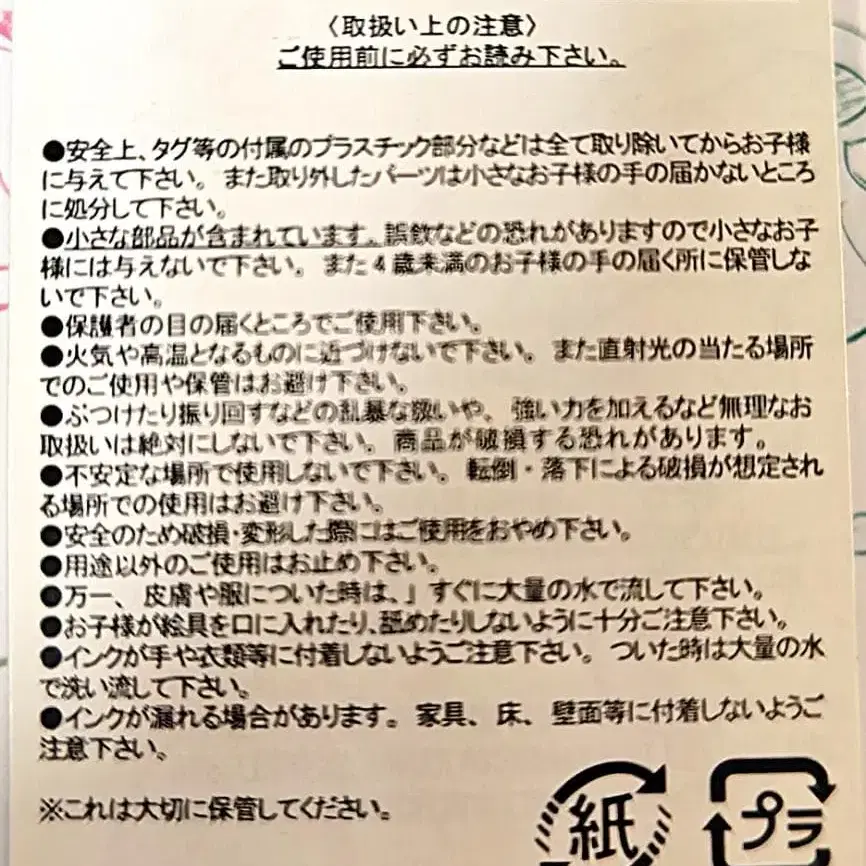 〈取扱い上の注意〉
ご使用前に必ずお読み下さい。
●安全上、タグ等の付属のプラスチック部分などは全て取り除いてからお子様
に与えて下さい。また取り外したパーツは小さなお子様の手の届かないところ
に処分して下さい。
●小さな部品が含まれています。誤飲などの恐れがありますので小さなお子
様には与えないで下さい。また4歳未満のお子様の手の届く所に保管しな
いで下さい。
●保護者の目の届くところでご使用下さい。
●火気や高温となるものに近づけないで下さい。また直射光の当たる場所
でのご使用や保管はお避け下さい。
●ぶつけたり振り回すなどの乱暴な扱いや、強い力を加えるなど無理なお
取扱いは絶対にしないで下さい。商品が破損する恐れがあります。
●不安定な場所で使用しないで下さい。転倒・落下による破損が想定され
る場所での使用はお避け下さい。
●安全のため破損・変形した際にはご使用をおやめ下さい。
●用途以外のご使用はお止め下さい。
●万一、皮膚や服についた時は、」すぐに大量の水で流して下さい。
●お子様が絵具を口に入れたり、舐めたりしないように十分ご注意下さい。
●インクが手や衣類等に付着しないようご注意下さい。ついた時は大量の水
で洗い流して下さい。
●インクが漏れる場合があります。家具、床、壁面等に付着しないようご
注意下さい。
※これは大切に保管してください。
紙 プラ